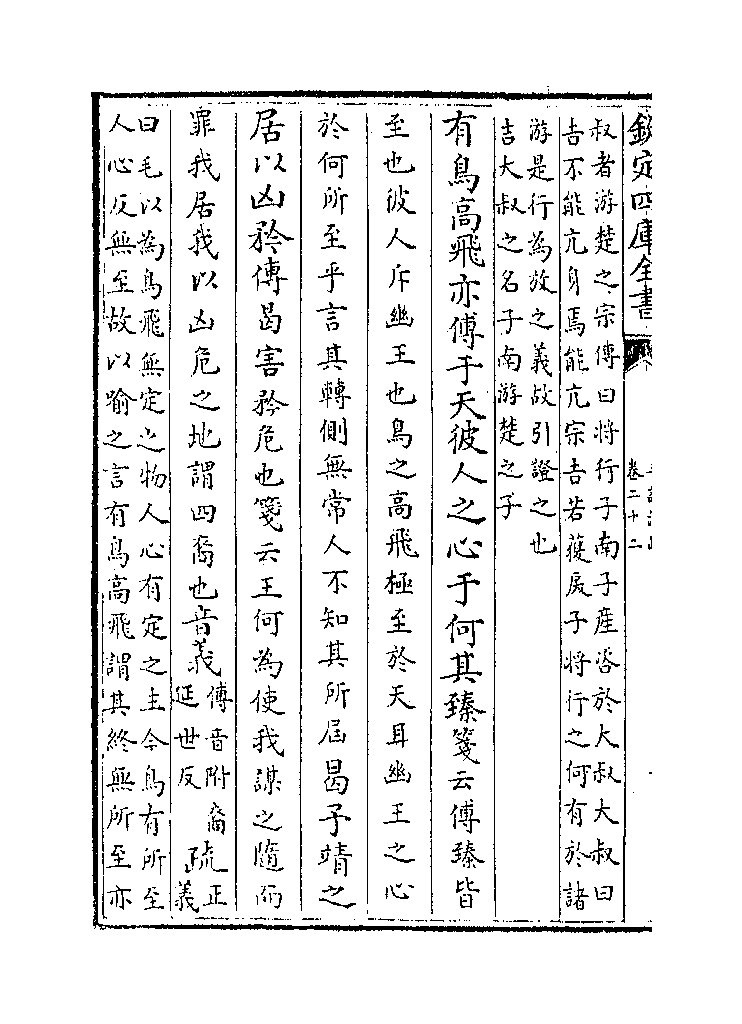 欽定四庫全書
卷二十二
叔者游楚之宗傳曰將行子南子產咨於大叔大叔曰
吉不能亢身焉能亢宗吉若獲戾子將行之何有於諸
游是行為放之義故引證之也
吉大叔之名子南游楚之子
有鳥高飛亦傅于天彼人之心于何其臻箋云傅臻皆
至也彼人斥幽王也鳥之高飛極至於天耳幽王之心
於何所至乎言其轉側無常人不知其所屆曷予靖之
居以凶矜傳曷害矜危也箋云王何為使我謀之隨而
罪我居我以凶危之地謂四裔也音義
傅音附裔
延世反
疏
正
義
曰毛以為鳥飛無定之物人心有定之主今鳥有所至
人心反無至故以喻之言有鳥高飛謂其終無所至亦